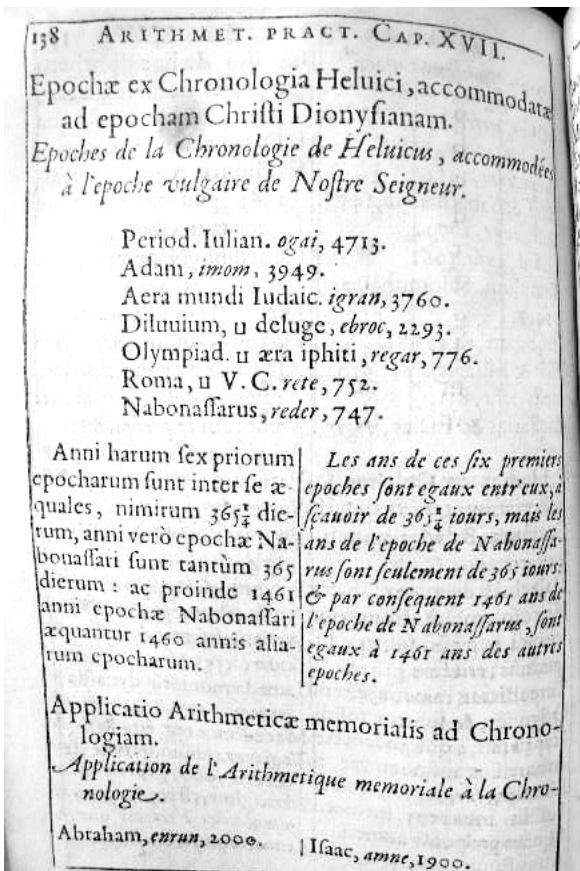 138 ARITHMET. PRACT. CAP. XVII.
Epochæ ex Chronologia Heluici, accommodatæ
ad epocham Chriſti Dionyſianam.
Epoches de la Chronologie de Heluicus, accommodées
à l'epoche vulgaire de Noſtre Seigneur.
Period. Iulian. ogai, 4713.
Adam, imom, 3949.
Aera mundi Iudaic. igran, 3760.
Diluuium, u deluge, ebroc, 2293.
Olympiad. u æra iphiti, regar, 776.
Roma, u V. C. rete, 752.
Nabonaſſarus, reder, 747.
Anni harum ſex priorum
epocharum ſunt inter ſe æ-
quales, nimirum 365¼ die-
rum, anni verò epochæ Na-
bonaſſari ſunt tantùm 365
dierum: ac proinde 1461
anni epochæ Nabonaſſari
æquantur 1460 annis alia-
rum epocharum.
Les ans de ces ſix premiers
epoches ſont egaux entr'eux, à
ſcauoir de 365¼ iours, mais les
ans de l'epoche de Nabonaſſa-
rus ſont ſeulement de 365 iours:
& par conſequent 1461 ans de
l'epoche de Nabonaſſarus, ſont
egaux à 1461 ans des autres
epoches.
Applicatio Arithmeticæ memorialis ad Chrono-
logiam.
Application de l'Arithmetique memoriale à la Chro-
nologie.
Abraham, enrun, 2000. | Iſaac, amne, 1900.